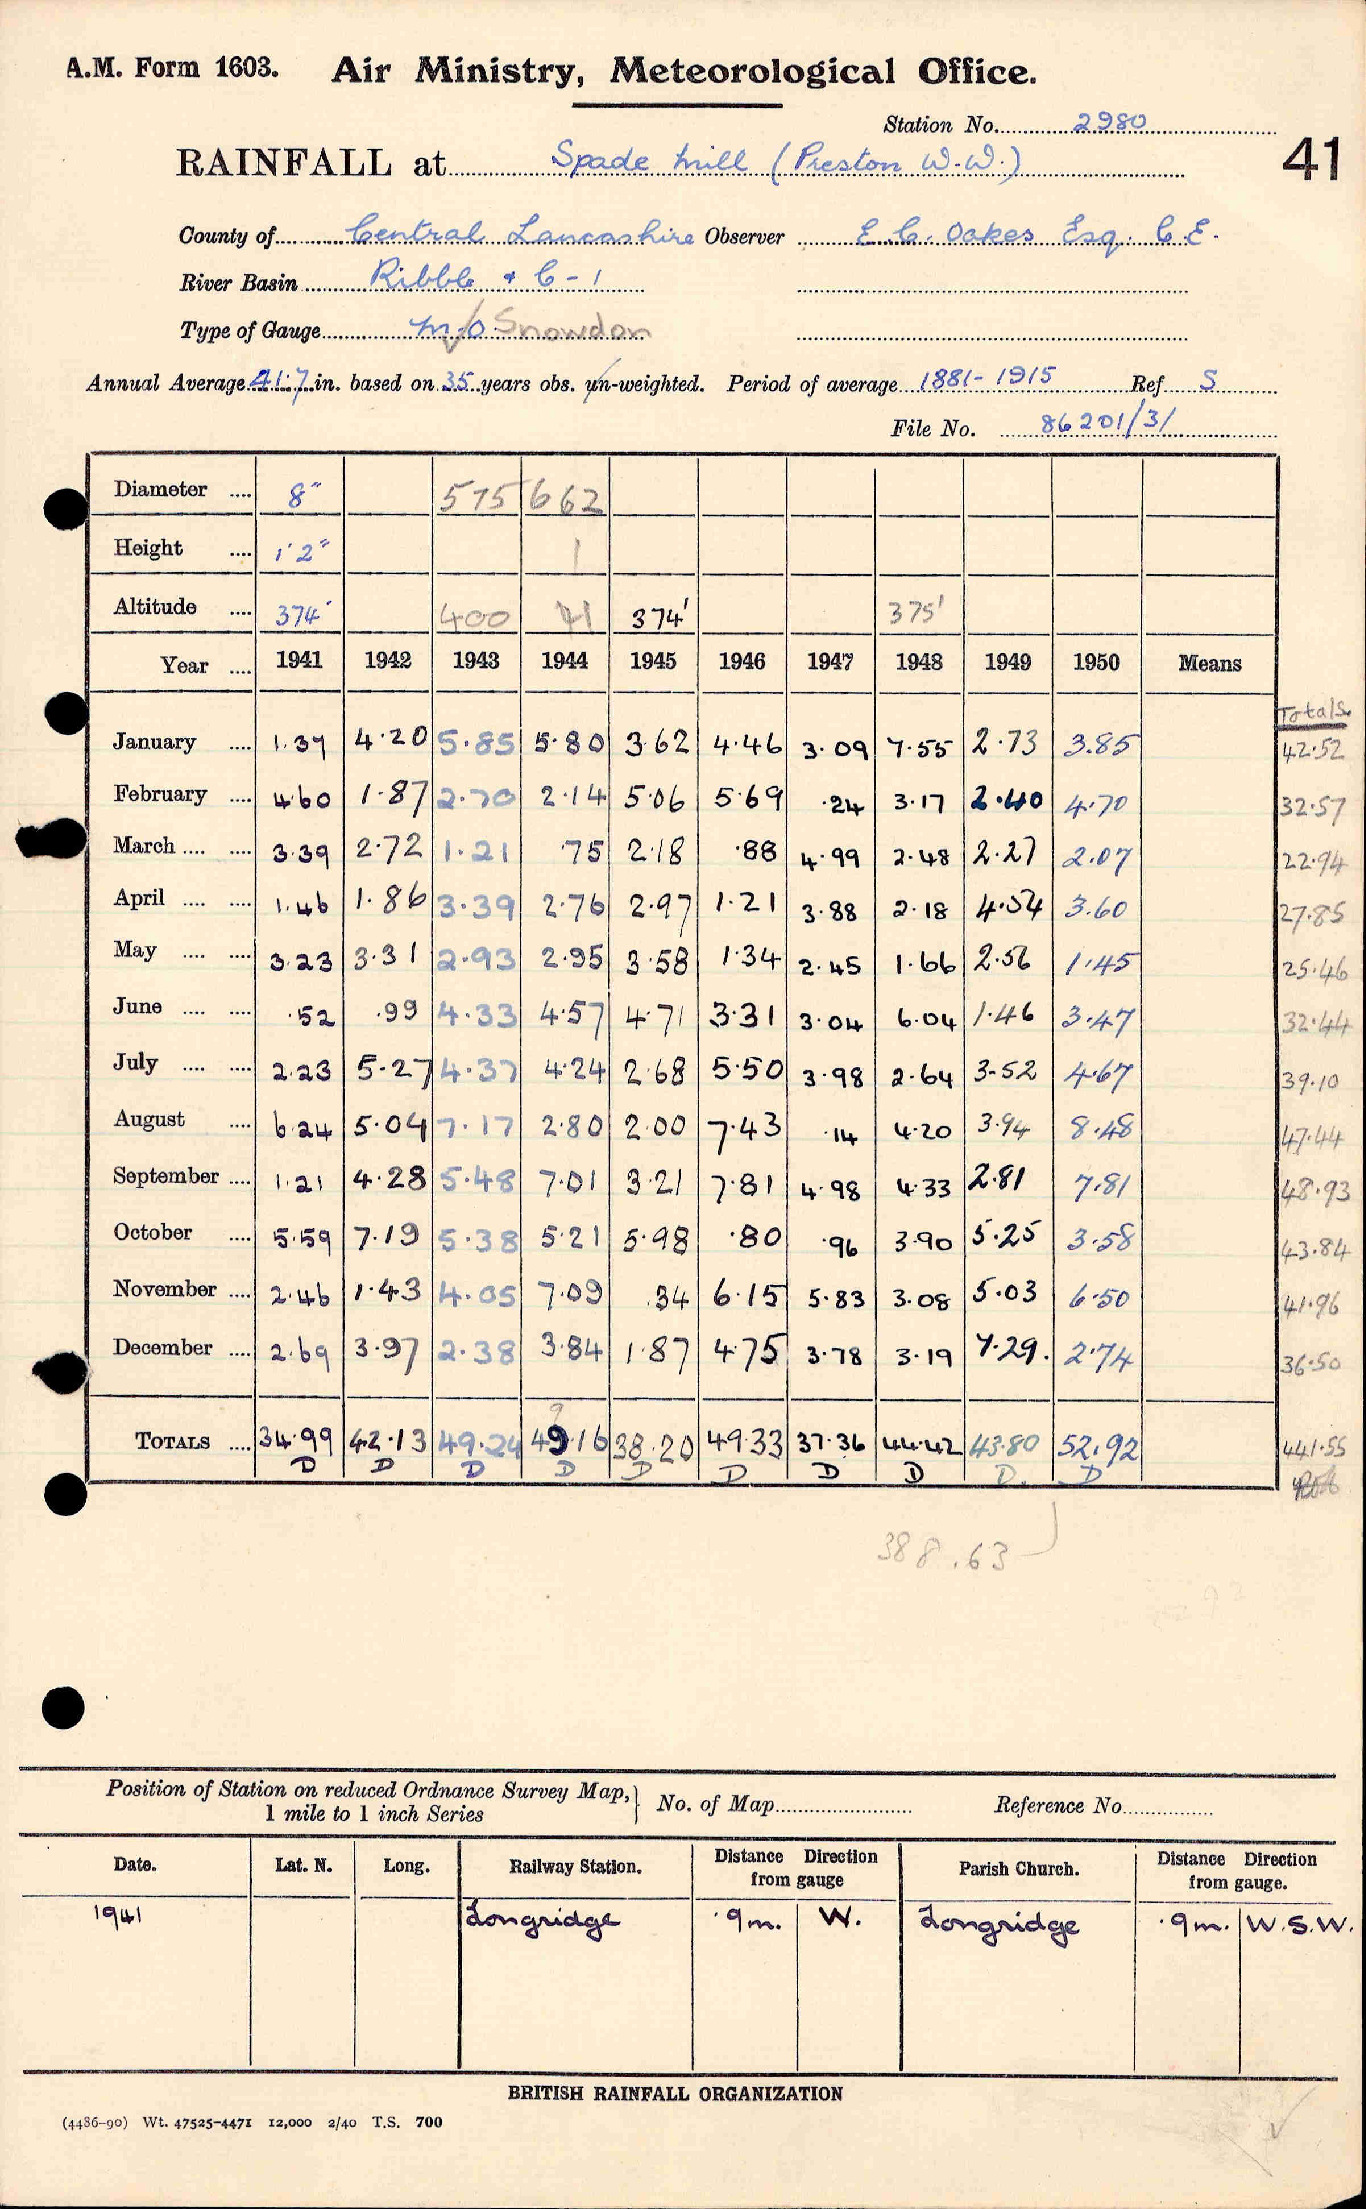 A.M. Form 1603. Air Ministry, Meteorological Office.
Station No. 2980
41
RAINFALL at Spade Mill (Preston W.W.)
County of Central Lancashire Observer E.C. Oakes Esq. C.E.
River Basin Ribble + C-1
Type of Gauge M.O Snowdon
Annual Average 41.7 in. based on 35 years obs. un-weighted. Period of average 1881-1915 Ref S
File No. 86201/31
Diameter .... 8" 575 662
Height .... 1'2" 1
Altitude .... 374' 400 41 374' 375'
Year .... 1941 1942 1943 1944 1945 1946 1947 1948 1949 1950 Means
Totals.
January .... 1.37 4.20 5.85 5.80 3.62 4.46 3.09 7.55 2.73 3.85 42.52
February .... 4.60 1.87 2.70 2.14 5.06 5.69 .24 3.17 2.40 4.70 32.57
March .... .... 3.39 2.72 1.21 .75 2.18 .88 4.99 2.48 2.27 2.07 22.94
April .... .... 1.46 1.86 3.39 2.76 2.97 1.21 3.88 2.18 4.54 3.60 27.85
May .... .... 3.23 3.31 2.93 2.95 3.58 1.34 2.45 1.66 2.56 1.45 25.46
June .... .... .52 .99 4.33 4.57 4.71 3.31 3.04 6.04 1.46 3.47 32.44
July .... .... 2.23 5.27 4.37 4.24 2.68 5.50 3.98 2.64 3.52 4.67 39.10
August .... 6.24 5.04 7.17 2.80 2.00 7.43 .14 4.20 3.94 8.48 47.44
September .... 1.21 4.28 5.48 7.01 3.21 7.81 4.98 4.33 2.81 7.81 48.93
October .... 5.59 7.19 5.38 5.21 5.98 .80 .96 3.90 5.25 3.58 43.84
November .... 2.46 1.43 4.05 7.09 .34 6.15 5.83 3.08 5.03 6.50 41.96
December .... 2.69 3.97 2.38 3.84 1.87 4.75 3.78 3.19 7.29. 2.74 36.50
9
TOTALS .... 34.99 42.13 49.24 49.16 38.20 49.33 37.36 44.42 43.80 52.92 441.55
D D D D D D D D D. D
388.63
Position of Station on reduced Ordnance Survey Map, 1 mile to 1 inch Series } No. of Map Reference No.
Date. Lat. N. Long. Railway Station. Distance Direction from gauge Parish Church. Distance Direction from gauge.
1941 Longridge .9m. W. Longridge .9m. W.S.W.
BRITISH RAINFALL ORGANIZATION
(4486-90) Wt. 47525-4471 12,000 2/40 T.S. 700